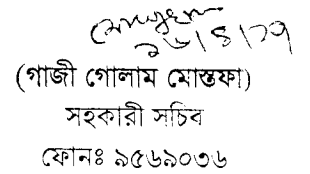 ১৬/৪/১৭
(গাজী গোলাম মোস্তফা)
সহকারী সচিব
ফোনঃ ৯৫৬৯০৩৬